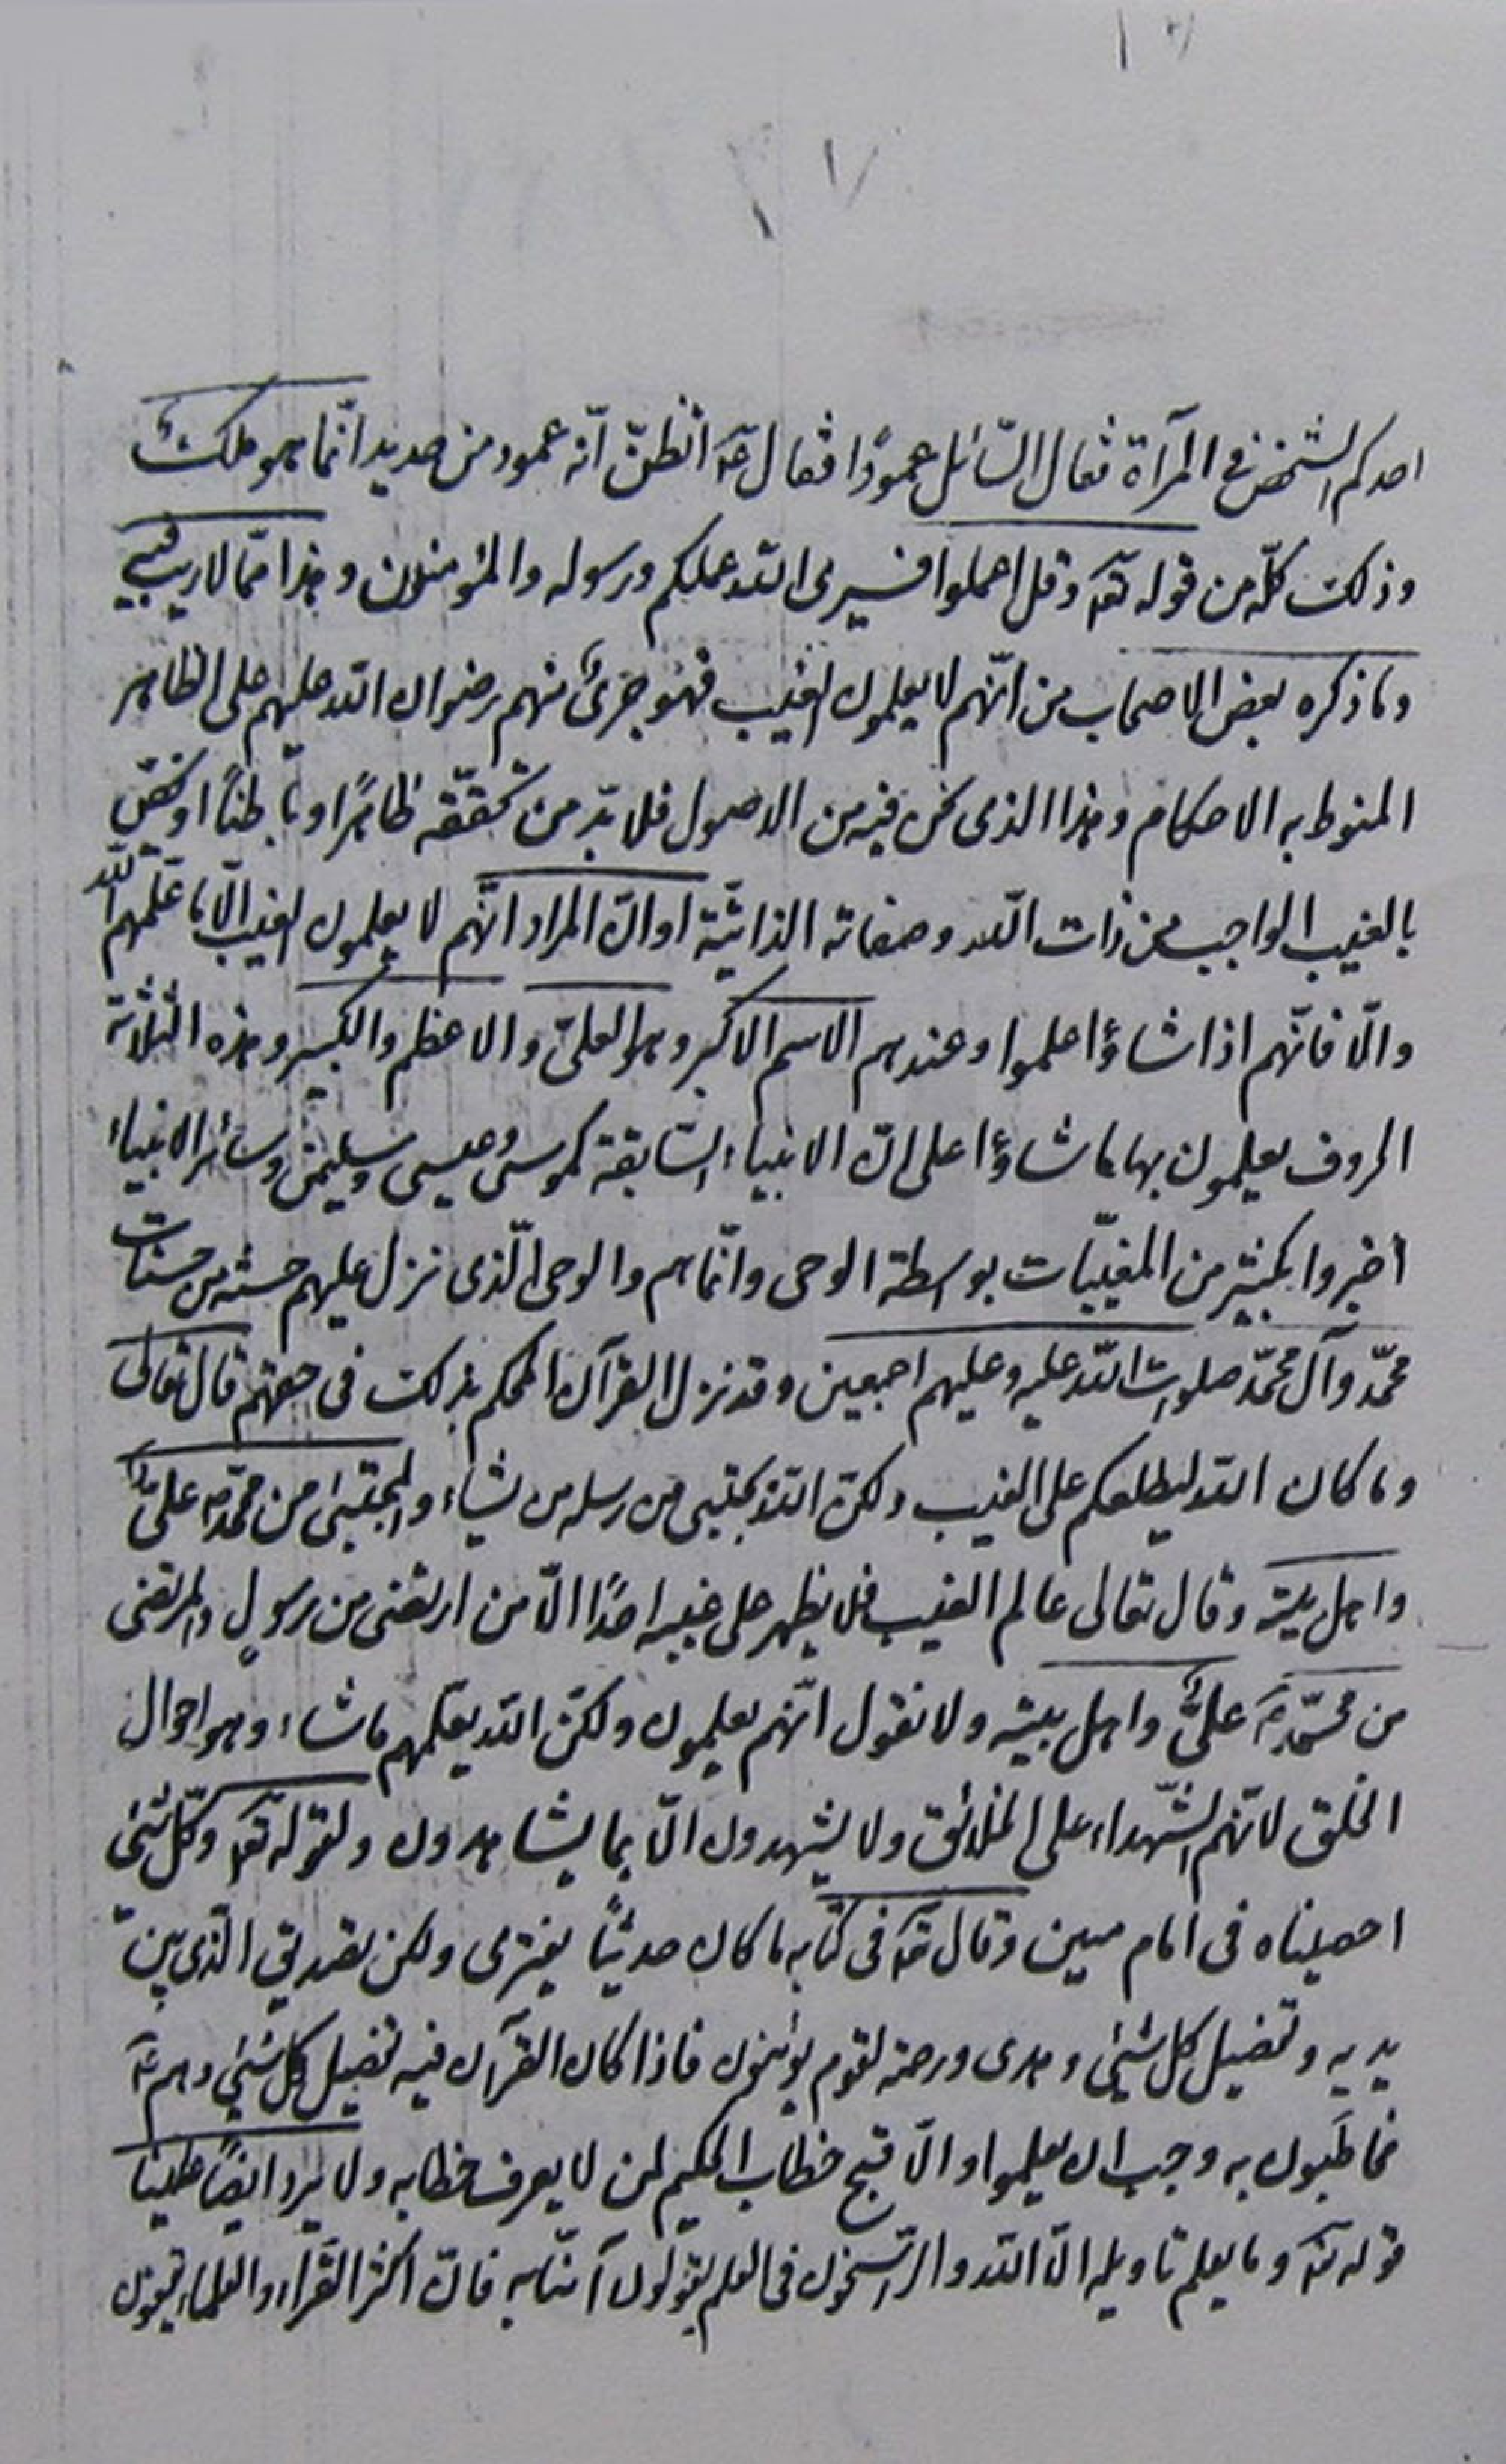 احدكم الشخص فى المرآة فقال السّائل عمودًا فقال عه اتظنّ انّه عمود من حديد انّما هو ملكٌ
وذلك كلّه من قوله تعه وقل اعملوا فسيرى اللّه عملكم ورسوله والمؤمنون وهذا ممّا لا ريب فيه
وما ذكره بعض الاصحاب من انّهم لا يعلمون الغيب فهو جرىٌ منهم رضوان اللّه عليهم على الظاهر
المنوط به الاحكام وهذا الذى نحن فيه من الاصول فلا بدّ من تحقّقه ظاهرًا وباطنًا او نخصّ
بالغيب الواجب من ذات اللّه وصفاته الذاتيّة او انّ المراد انّهم لا يعلمون الغيب الّا ما علّمهم اللّه
والّا فانّهم اذا شاؤا علموا وعندهم الاسم الاكبر وهو العلىّ والاعظم والكبير وهذه الثلاثة
الحروف يعلمون بها ما شاؤا على انّ الانبياء السّابقة كموسى وعيسى وسليمن وسائر الانبياء
اخبروا بكثير من المغيّبات بواسطة الوحى وانّما هم والوحى الّذى نزل عليهم حسنه من حسنات
محمّد وآل محمّد صلوات اللّه عليه وعليهم اجمعين وقد نزل القرآن المحكم بذلك فى حقهم قال تعالى
وما كان اللّه ليطلعكم على الغيب ولكنّ اللّه يجتبى من رسله من يشاء والمجتبى من محمّد ص علىّ ع
واهل بيته وقال تعالى عالم الغيب فلا يظهر على غيبه احدًا الّا من ارتضى من رسولٍ والمرتضى
من محمّد ص علىّ واهل بيته ولا نقول انّهم يعلمون ولكنّ اللّه يعلّمهم ما شاء وهو احوال
الخلق لانّهم الشّهداء على الخلائق ولا يشهدون الّا بما يشاهدون ولقوله تعه وكلّ شئ
احصيناه فى امام مبين وقال تعه فى كتابه ما كان حديثًا يفترى ولكن تصديق الّذى بين
يديه وتفصيل كل شئ وهدى ورحمة لقوم يؤمنون فاذا كان القرآن فيه تفصيل كل شئ وهم عه
مخاطَبون به وجب ان يعلموا والّا قبح خطاب الحكيم لمن لا يعرف خطابه ولا يرد ايضًا علينا
قوله تعه وما يعلم تاويله الّا اللّه والرّاسخون فى العلم يقولون آمنّا به فانّ اكثر القرّاء والعلماء يقفون